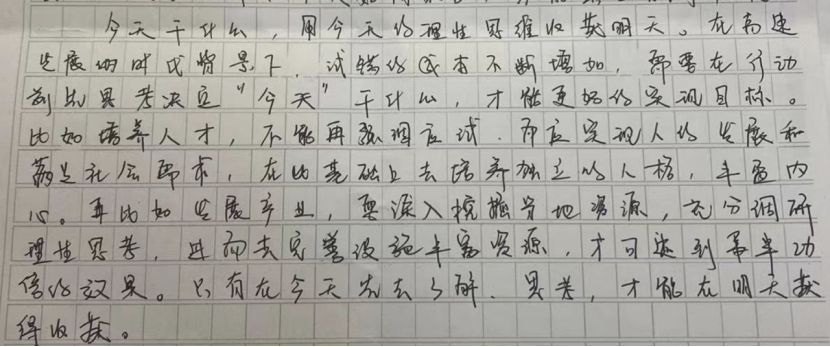 今天干什么，用今天的理性思维收获明天。在高速
发展的时代背景下，试错的成本不断增加，需要在行动
前先思考决定“今天”干什么，才能更好的实现目标。
比如培养人才，不能再强调应试，而应实现人的发展和
满足社会需求，在此基础上去培养独立的人格，丰盈内
心。再比如发展产业，要深入挖掘当地资源，充分调研
理性思考，进而去完善设施丰富资源，才可达到事半功
倍的效果。只有在今天先去了解、思考，才能在明天获
得收获。